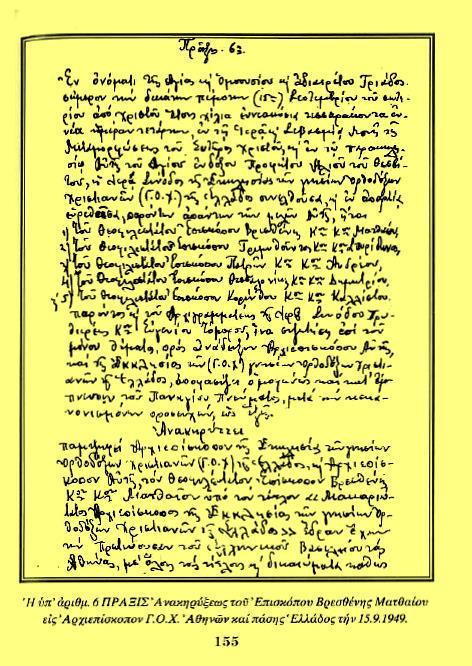 Πρᾶξις 6.
Ἐν ὀνόματι τῆς Ἁγίας καὶ Ὁμοουσίου καὶ ἀδιαιρέτου Τριάδος.
σήμερον τὴν δεκάτην πέμπτην (15ην) Σεπτεμβρίου τοῦ σωτη-
ρίου ἀπὸ Χριστοῦ ἔτους χίλια ἐννεακόσια τεσσαράκοντα ἐν-
νέα ἡμέραν πέμπτην, ἐν τῇ Ἱερᾷ καὶ Σεβασμίᾳ Μονῇ τῆς
Μεταμορφώσεως τοῦ Σωτῆρος Χριστοῦ καὶ ἐν τῷ παρεκκλη-
σίῳ Αὐτῆς τοῦ Ἁγίου ἐνδόξου Προφήτου Ἠλιοῦ τοῦ Θεσβί-
του, ἡ Ἱερὰ Σύνοδος τῆς Ἐκκλησίας τῶν γνησίων Ὀρθοδόξων
Χριστιανῶν (Γ.Ο.Χ.) τῆς Ἑλλάδος συνελθοῦσα, καὶ ἐν ἀπαρτίᾳ
εὑρεθεῖσα, παρόντων ἁπάντων τῶν μελῶν Αὐτῆς, ἤτοι
1) τοῦ Θεοφιλεστάτου Ἐπισκόπου Βρεσθένης Κου Κου Ματθαίου,
2) τοῦ Θεοφιλεστάτου Ἐπισκόπου Τριμυθοῦντος Κου Κου Σπυρίδωνος,
3) τοῦ Θεοφιλεστάτου Ἐπισκόπου Πατρῶν Κου Κου Ἀνδρέου,
4) τοῦ Θεοφιλεστάτου Ἐπισκόπου Θεσσαλονίκης Κου Κου Δημητρίου,
5) τοῦ Θεοφιλεστάτου Ἐπισκόπου Κορινθίας Κου Κου Καλλίστου.
παρόντος καὶ τοῦ Ἀρχιγραμματέως τῆς Ἱερᾶς Συνόδου Πρω-
Κου Εὐγενίου Τόμπρου, ἵνα ἐπὶ τοῦ
μόνου θέματος, πρὸς ἀνάδειξιν Ἀρχιεπισκόπου Αὐτῆς,
καὶ τῆς Ἐκκλησίας τῶν (Γ.Ο.Χ) γνησίων Ὀρθοδόξων Χριστι-
ανῶν τῆς Ἑλλάδος, ἀποφασίζει ὁμοφώνως καὶ κατ' ἐπί-
πνευσιν τοῦ Παναγίου Πνεύματος, μετὰ τὴν κεκα-
νονισμένην προσευχήν, ὡς ἑξῆς.
Ἀνακηρύττει
παμψηφεὶ Ἀρχιεπίσκοπον τῆς Ἐκκλησίας τῶν γνησίων
Ὀρθοδόξων Χριστιανῶν (Γ.Ο.Χ.) τῆς Ἑλλάδος, καὶ Ἀρχιεπίσ-
κοπον Αὐτῆς, τὸν Θεοφιλέστατον Ἐπίσκοπον Βρεσθένης
Κον Κον Ματθαῖον ὑπὸ τὸν τίτλον «Μακαριώ-
τατος Ἀρχιεπίσκοπος τῆς Ἐκκλησίας τῶν γνησίων Ὀρ-
θοδόξων Χριστιανῶν τῆς Ἑλλάδος» ἕδραν ἔχων
τὴν Πρωτεύουσαν τοῦ Ἑλληνικοῦ Βασιλείου τὰς
Ἀθήνας, μὲ ὅλους τοὺς τίτλους καὶ δικαιώματα καθὼς
Ἡ ὑπ' ἀριθμ. 6 ΠΡΑΞΙΣ Ἀνακηρύξεως τοῦ Ἐπισκόπου Βρεσθένης Ματθαίου
εἰς Ἀρχιεπίσκοπον Γ.Ο.Χ. Ἀθηνῶν καί πάσης Ἑλλάδος τήν 15.9.1949.
155